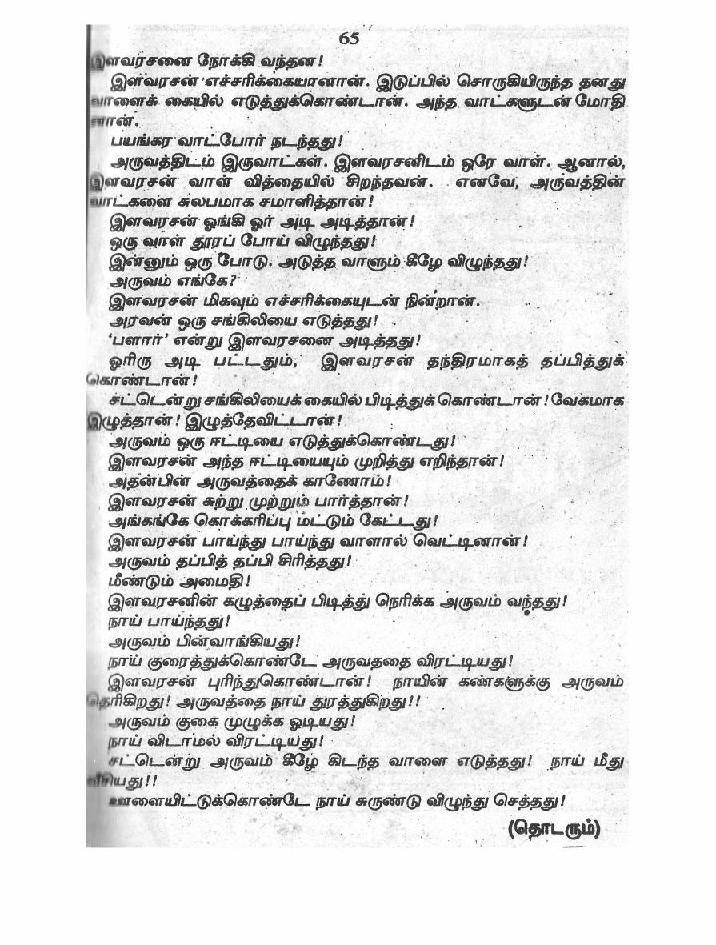 65
இளவரசனை நோக்கி வந்தன!
இளவரசன் எச்சரிக்கையானான். இடுப்பில் சொருகியிருந்த தனது
வாளைக் கையில் எடுத்துக்கொண்டான். அந்த வாட்களுடன் மோதி
னான்.
பயங்கர வாட்போர் நடந்தது!
அருவத்திடம் இருவாட்கள். இளவரசனிடம் ஒரே வாள். ஆனால்,
இளவரசன் வாள் வித்தையில் சிறந்தவன். எனவே, அருவத்தின்
வாட்களை சுலபமாக சமாளித்தான்!
இளவரசன் ஓங்கி ஓர் அடி அடித்தான்!
ஒரு வாள் தூரப் போய் விழுந்தது!
இன்னும் ஒரு போடு. அடுத்த வாளும் கீழே விழுந்தது!
அருவம் எங்கே?
இளவரசன் மிகவும் எச்சரிக்கையுடன் நின்றான்.
அரவன் ஒரு சங்கிலியை எடுத்தது!
‘பளார்’ என்று இளவரசனை அடித்தது!
ஓரிரு அடி பட்டதும், இளவரசன் தந்திரமாகத் தப்பித்துக்
கொண்டான்!
சட்டென்று சங்கிலியைக் கையில் பிடித்துக் கொண்டான்! வேகமாக
இழுத்தான்! இழுத்தேவிட்டான்!
அருவம் ஒரு ஈட்டியை எடுத்துக்கொண்டது!
இளவரசன் அந்த ஈட்டியையும் முறித்து எறிந்தான்!
அதன்பின் அருவத்தைக் காணோம்!
இளவரசன் சுற்று முற்றும் பார்த்தான்!
அங்கங்கே கொக்கரிப்பு மட்டும் கேட்டது!
இளவரசன் பாய்ந்து பாய்ந்து வாளால் வெட்டினான்!
அருவம் தப்பித் தப்பி சிரித்தது!
மீண்டும் அமைதி!
இளவரசனின் கழுத்தைப் பிடித்து நெரிக்க அருவம் வந்தது!
நாய் பாய்ந்தது!
அருவம் பின்வாங்கியது!
நாய் குரைத்துக்கொண்டே அருவததை விரட்டியது!
இளவரசன் புரிந்துகொண்டான்! நாயின் கண்களுக்கு அருவம்
தெரிகிறது! அருவத்தை நாய் துரத்துகிறது!!
அருவம் குகை முழுக்க ஓடியது!
நாய் விடாமல் விரட்டியது!
சட்டென்று அருவம் கீழே கிடந்த வாளை எடுத்தது! நாய் மீது
வீசியது!!
ஊளையிட்டுக்கொண்டே நாய் சுருண்டு விழுந்து செத்தது!
(தொடரும்)